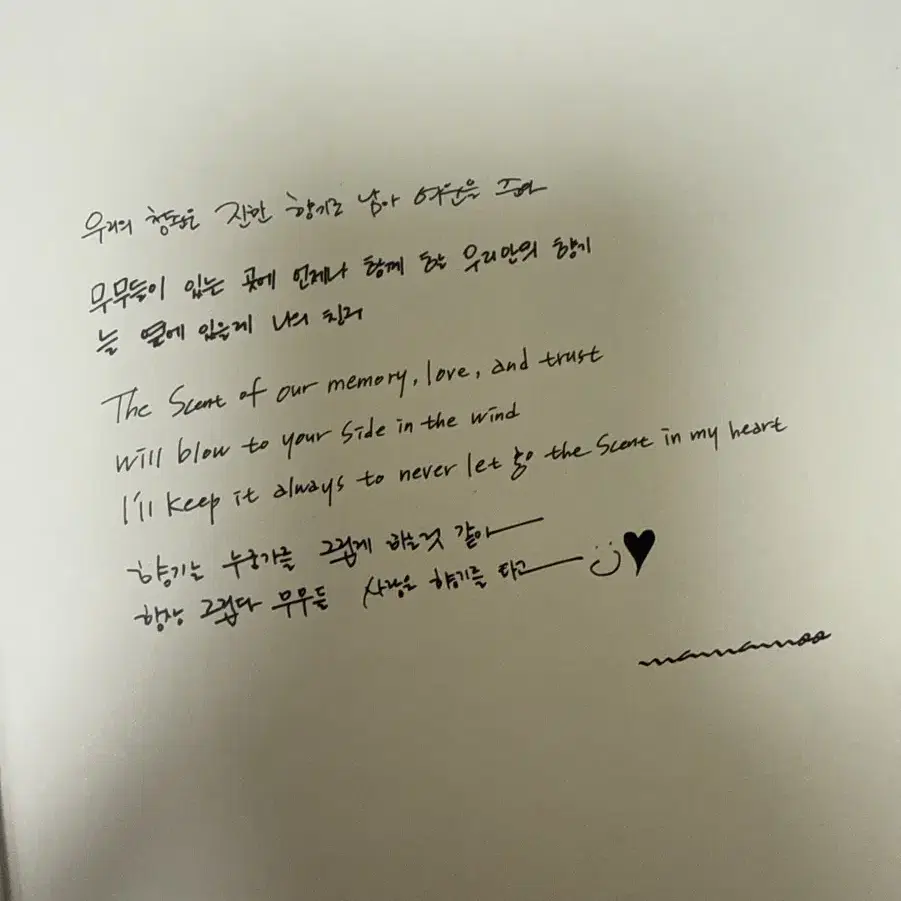 우리의 청춘은 진한 향기로 남아 여운을 주다
무무들이 있는 곳에 언제나 함께 할 우리만의 향기
늘 옆에 있을게 나의 친구
The Scent of our memory, love, and trust
will blow to your side in the wind
I'll keep it always to never let go the Scent in my heart
향기는 누군가를 그립게 하는것 같아
항상 그립다 무무들 사랑은 향기를 타고 :) ♥
mamamoo